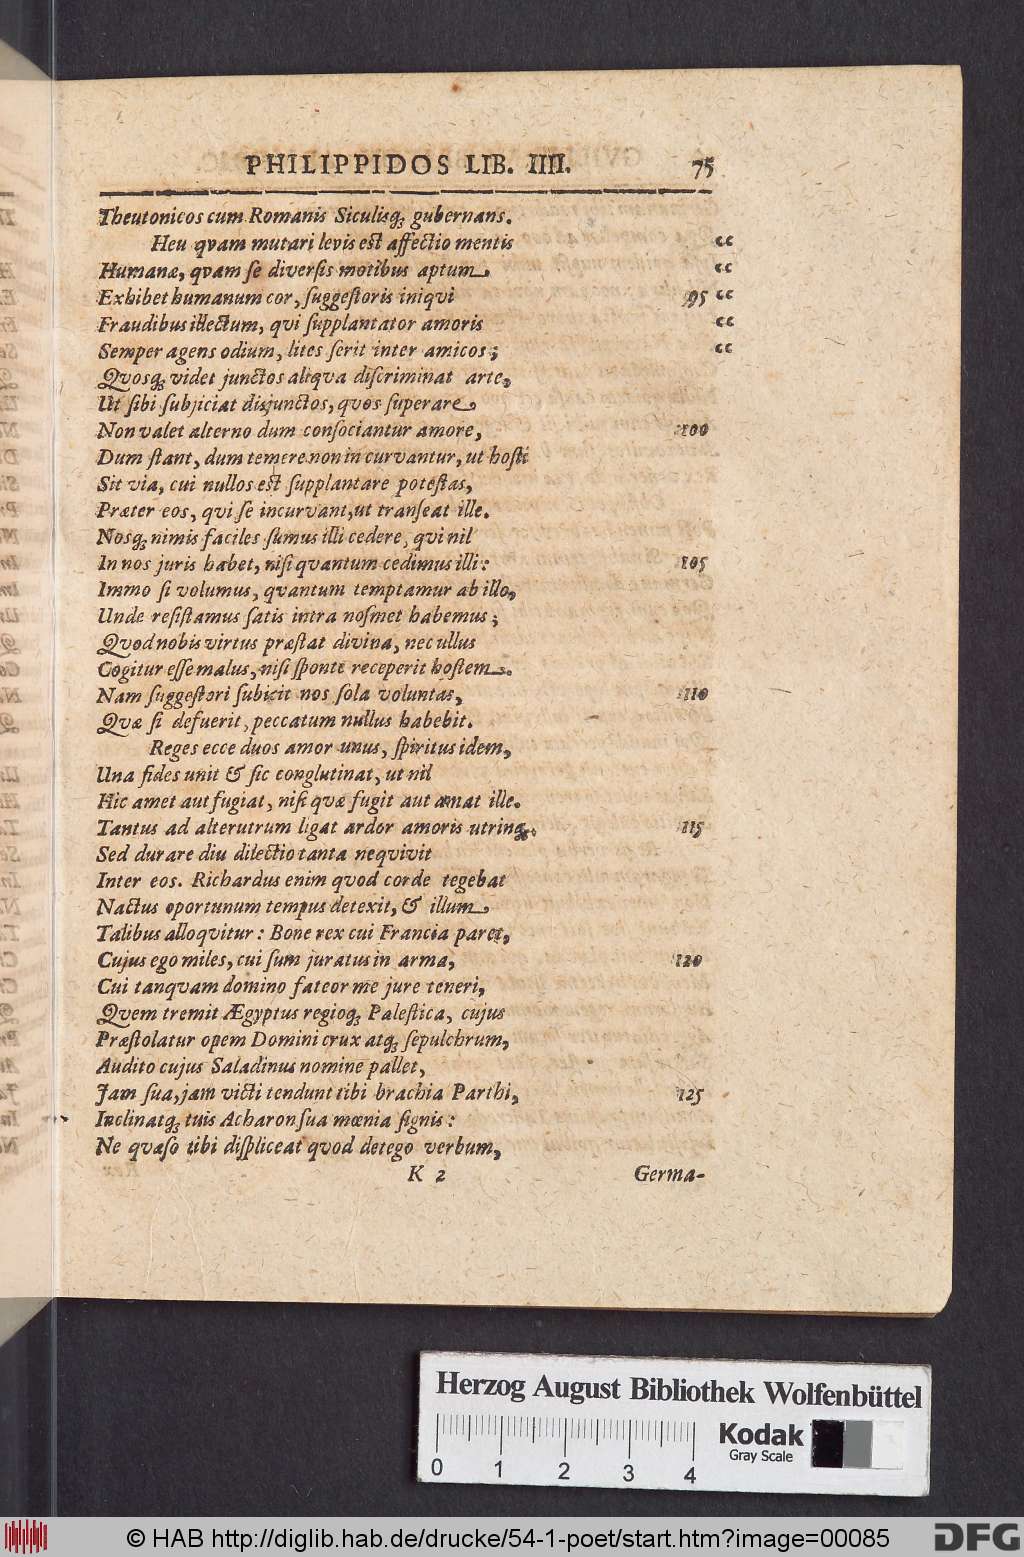 PHILIPPIDOS LIB. IIII. 75
Theutonicos cum Romanis Siculisq́ꝫ gubernans.
Heu qvam mutari levis est affectio mentis "
Humanæ, qvam se diversis motibus aptum "
Exhibet humanum cor, suggestoris iniqvi 95 "
Fraudibus illectum, qvi supplantator amoris "
Semper agens odium, lites serit inter amicos; "
Qvosqꝫ videt junctos aliqva discriminat arte,
Ut sibi subjiciat disjunctos, qvos superare
Non valet alterno dum consociantur amore, 100
Dum stant, dum temere non incurvantur, ut hosti
Sit via, cui nullos est supplantare potestas,
Præter eos, qvi se incurvant, ut transeat ille.
Nosqꝫ nimis faciles sumus illi cedere, qvi nil
In nos juris habet, nisi qvantum cedimus illi: 105
Immo si volumus, qvantum temptamur ab illo,
Unde resistamus satis intra nosmet habemus;
Qvod nobis virtus præstat divina, nec ullus
Cogitur esse malus, nisi sponte receperit hostem.
Nam suggestori subicit nos sola voluntas, 110
Qvæ si defuerit, peccatum nullus habebit.
Reges ecce duos amor unus, spiritus idem,
Una fides unit & sic conglutinat, ut nil
Hic amet aut fugiat, nisi qvæ fugit aut amat ille.
Tantus ad alterutrum ligat ardor amoris utrinqꝫ. 115
Sed durare diu dilectio tanta neqvivit
Inter eos. Richardus enim qvod corde tegebat
Nactus oportunum tempus detexit, & illum
Talibus alloqvitur: Bone rex cui Francia paret,
Cujus ego miles, cui sum juratus in arma, 120
Cui tanqvam domino fateor me jure teneri,
Qvem tremit Ægyptus regioqꝫ Palestica, cujus
Præstolatur opem Domini crux atqꝫ sepulchrum,
Audito cujus Saladinus nomine pallet,
Jam sua, jam victi tendunt tibi brachia Parthi, 125
Inclinatqꝫ tuis Acharon sua mœnia signis:
Ne qvæso tibi displiceat qvod detego verbum,
K 2 Germa-
Herzog August Bibliothek Wolfenbüttel
0 1 2 3 4
Kodak
Gray Scale
© HAB http://diglib.hab.de/drucke/54-1-poet/start.htm?image=00085
DFG